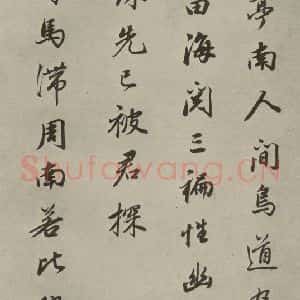 亭南人間鳥道
海閣三褊性幽
先已被君探
馬滯周南若比
Shufawang.CN